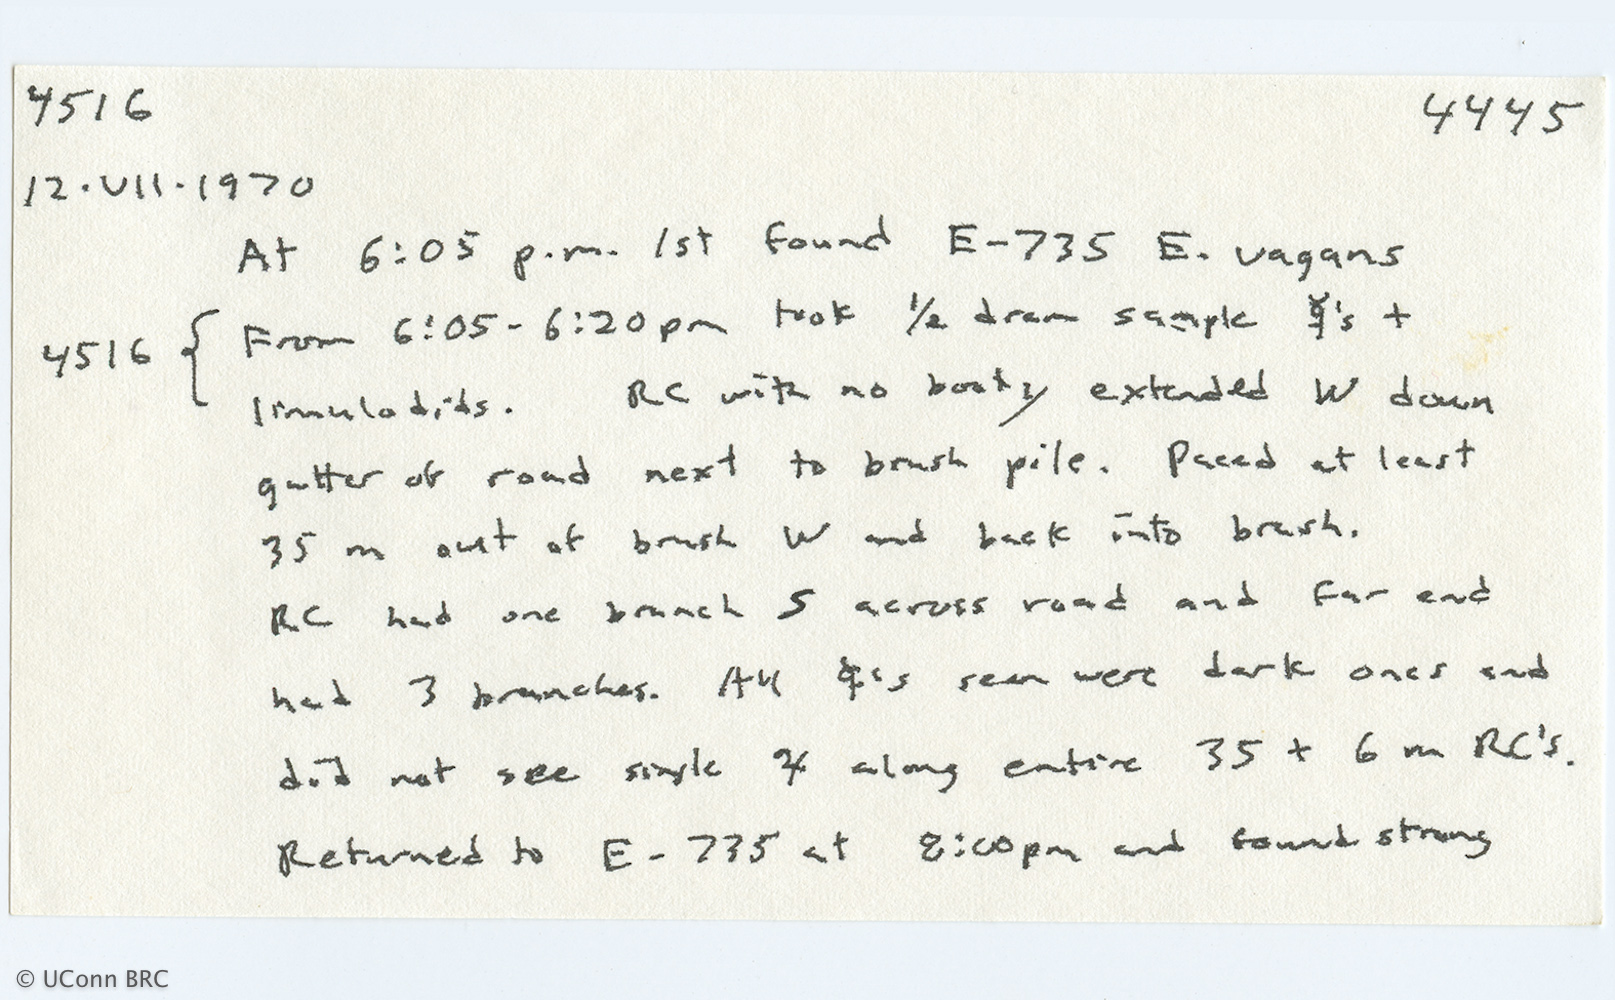 4516 4445
12.VII.1970
At 6:05 p.m. 1st found E-735 E. vagans
4516 { From 6:05-6:20pm took 1/2 dram sample ☿'s +
limulodids. RC with no booty extended W down
gutter of road next to brush pile. Paced at least
35 m out of brush W and back into brush.
RC had one branch S across road and far end
had 3 branches. All ☿'s seen were dark ones and
did not see single ♃ along entire 35 + 6 m RC's.
Returned to E-735 at 8:00pm and found strong
© UConn BRC